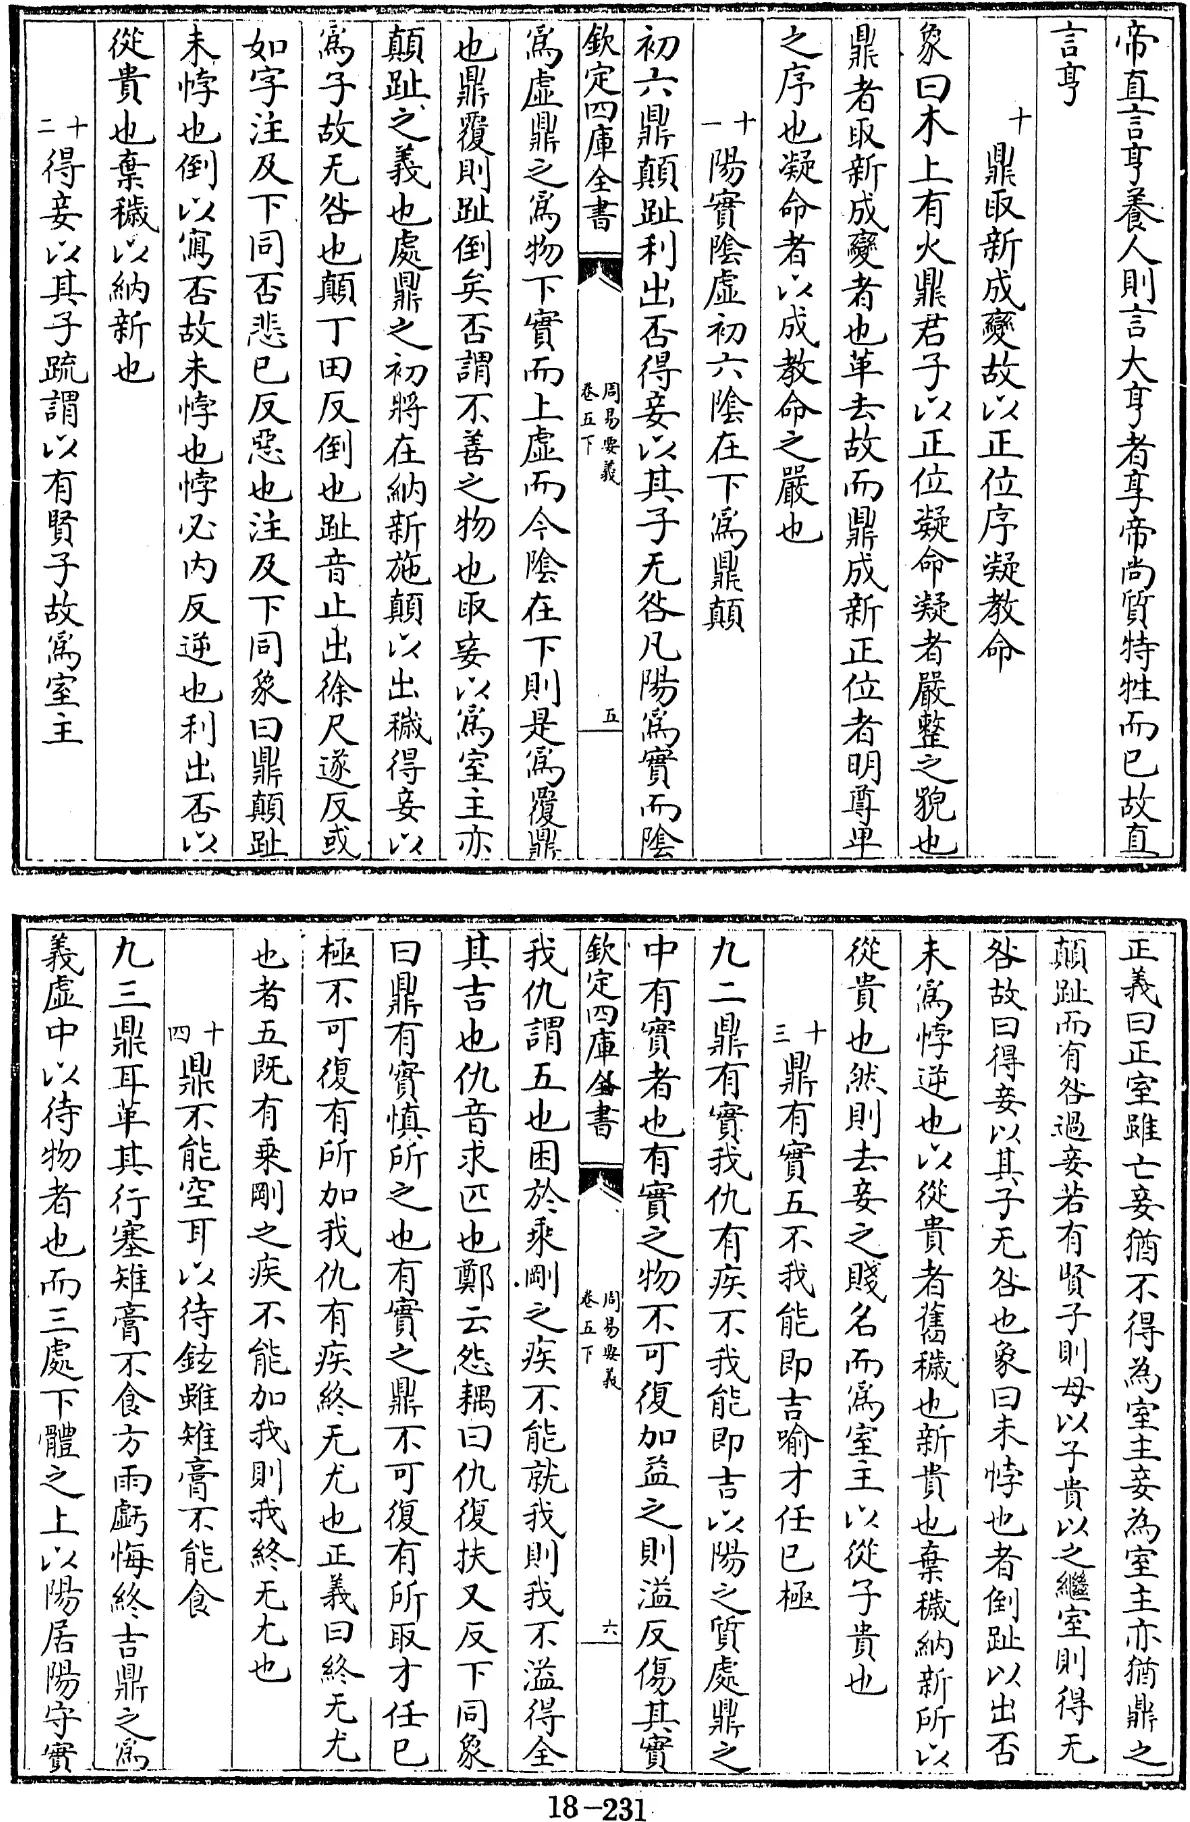 帝直言亨養人則言大亨者享帝尚質特牲而已故直
言亨
十鼎取新成變故以正位序凝教命
象曰木上有火鼎君子以正位凝命凝者嚴整之貌也
鼎者取新成變者也革去故而鼎成新正位者明尊卑
之序也凝命者以成教命之嚴也
十一陽實陰虛初六陰在下爲鼎顛
初六鼎顛趾利出否得妾以其子无咎凡陽爲實而陰
欽定四庫全書
周易要義
卷五下
五
爲虛鼎之爲物下實而上虛而今陰在下則是爲覆鼎
也鼎覆則趾倒矣否謂不善之物也取妾以爲室主亦
顛趾之義也處鼎之初將在納新施顛以出穢得妾以
爲子故无咎也顛丁田反倒也趾音止出徐尺遂反或
如字注及下同否悲已反惡也注及下同象曰鼎顛趾
未悖也倒以寫否故未悖也悖必内反逆也利出否以
從貴也棄穢以納新也
十二得妾以其子疏謂以有賢子故爲室主
正義曰正室雖亡妾猶不得為室主妾為室主亦猶鼎之
顛趾而有咎過妾若有賢子則母以子貴以之繼室則得无
咎故曰得妾以其子无咎也象曰未悖也者倒趾以出否
未爲悖逆也以從貴者舊穢也新貴也棄穢納新所以
從貴也然則去妾之賤名而爲室主以從子貴也
十三鼎有實五不我能即吉喻才任已極
九二鼎有實我仇有疾不我能即吉以陽之質處鼎之
中有實者也有實之物不可復加益之則溢反傷其實
欽定四庫全書
周易要義
卷五下
六
我仇謂五也困於乘剛之疾不能就我則我不溢得全
其吉也仇音求匹也鄭云怨耦曰仇復扶又反下同象
曰鼎有實慎所之也有實之鼎不可復有所取才任已
極不可復有所加我仇有疾終无尤也正義曰終无尤
也者五既有乗剛之疾不能加我則我終无尤也
十四鼎不能空耳以待鉉雖雉膏不能食
九三鼎耳革其行塞雉膏不食方雨虧悔終吉鼎之爲
義虛中以待物者也而三處下體之上以陽居陽守實
18-231